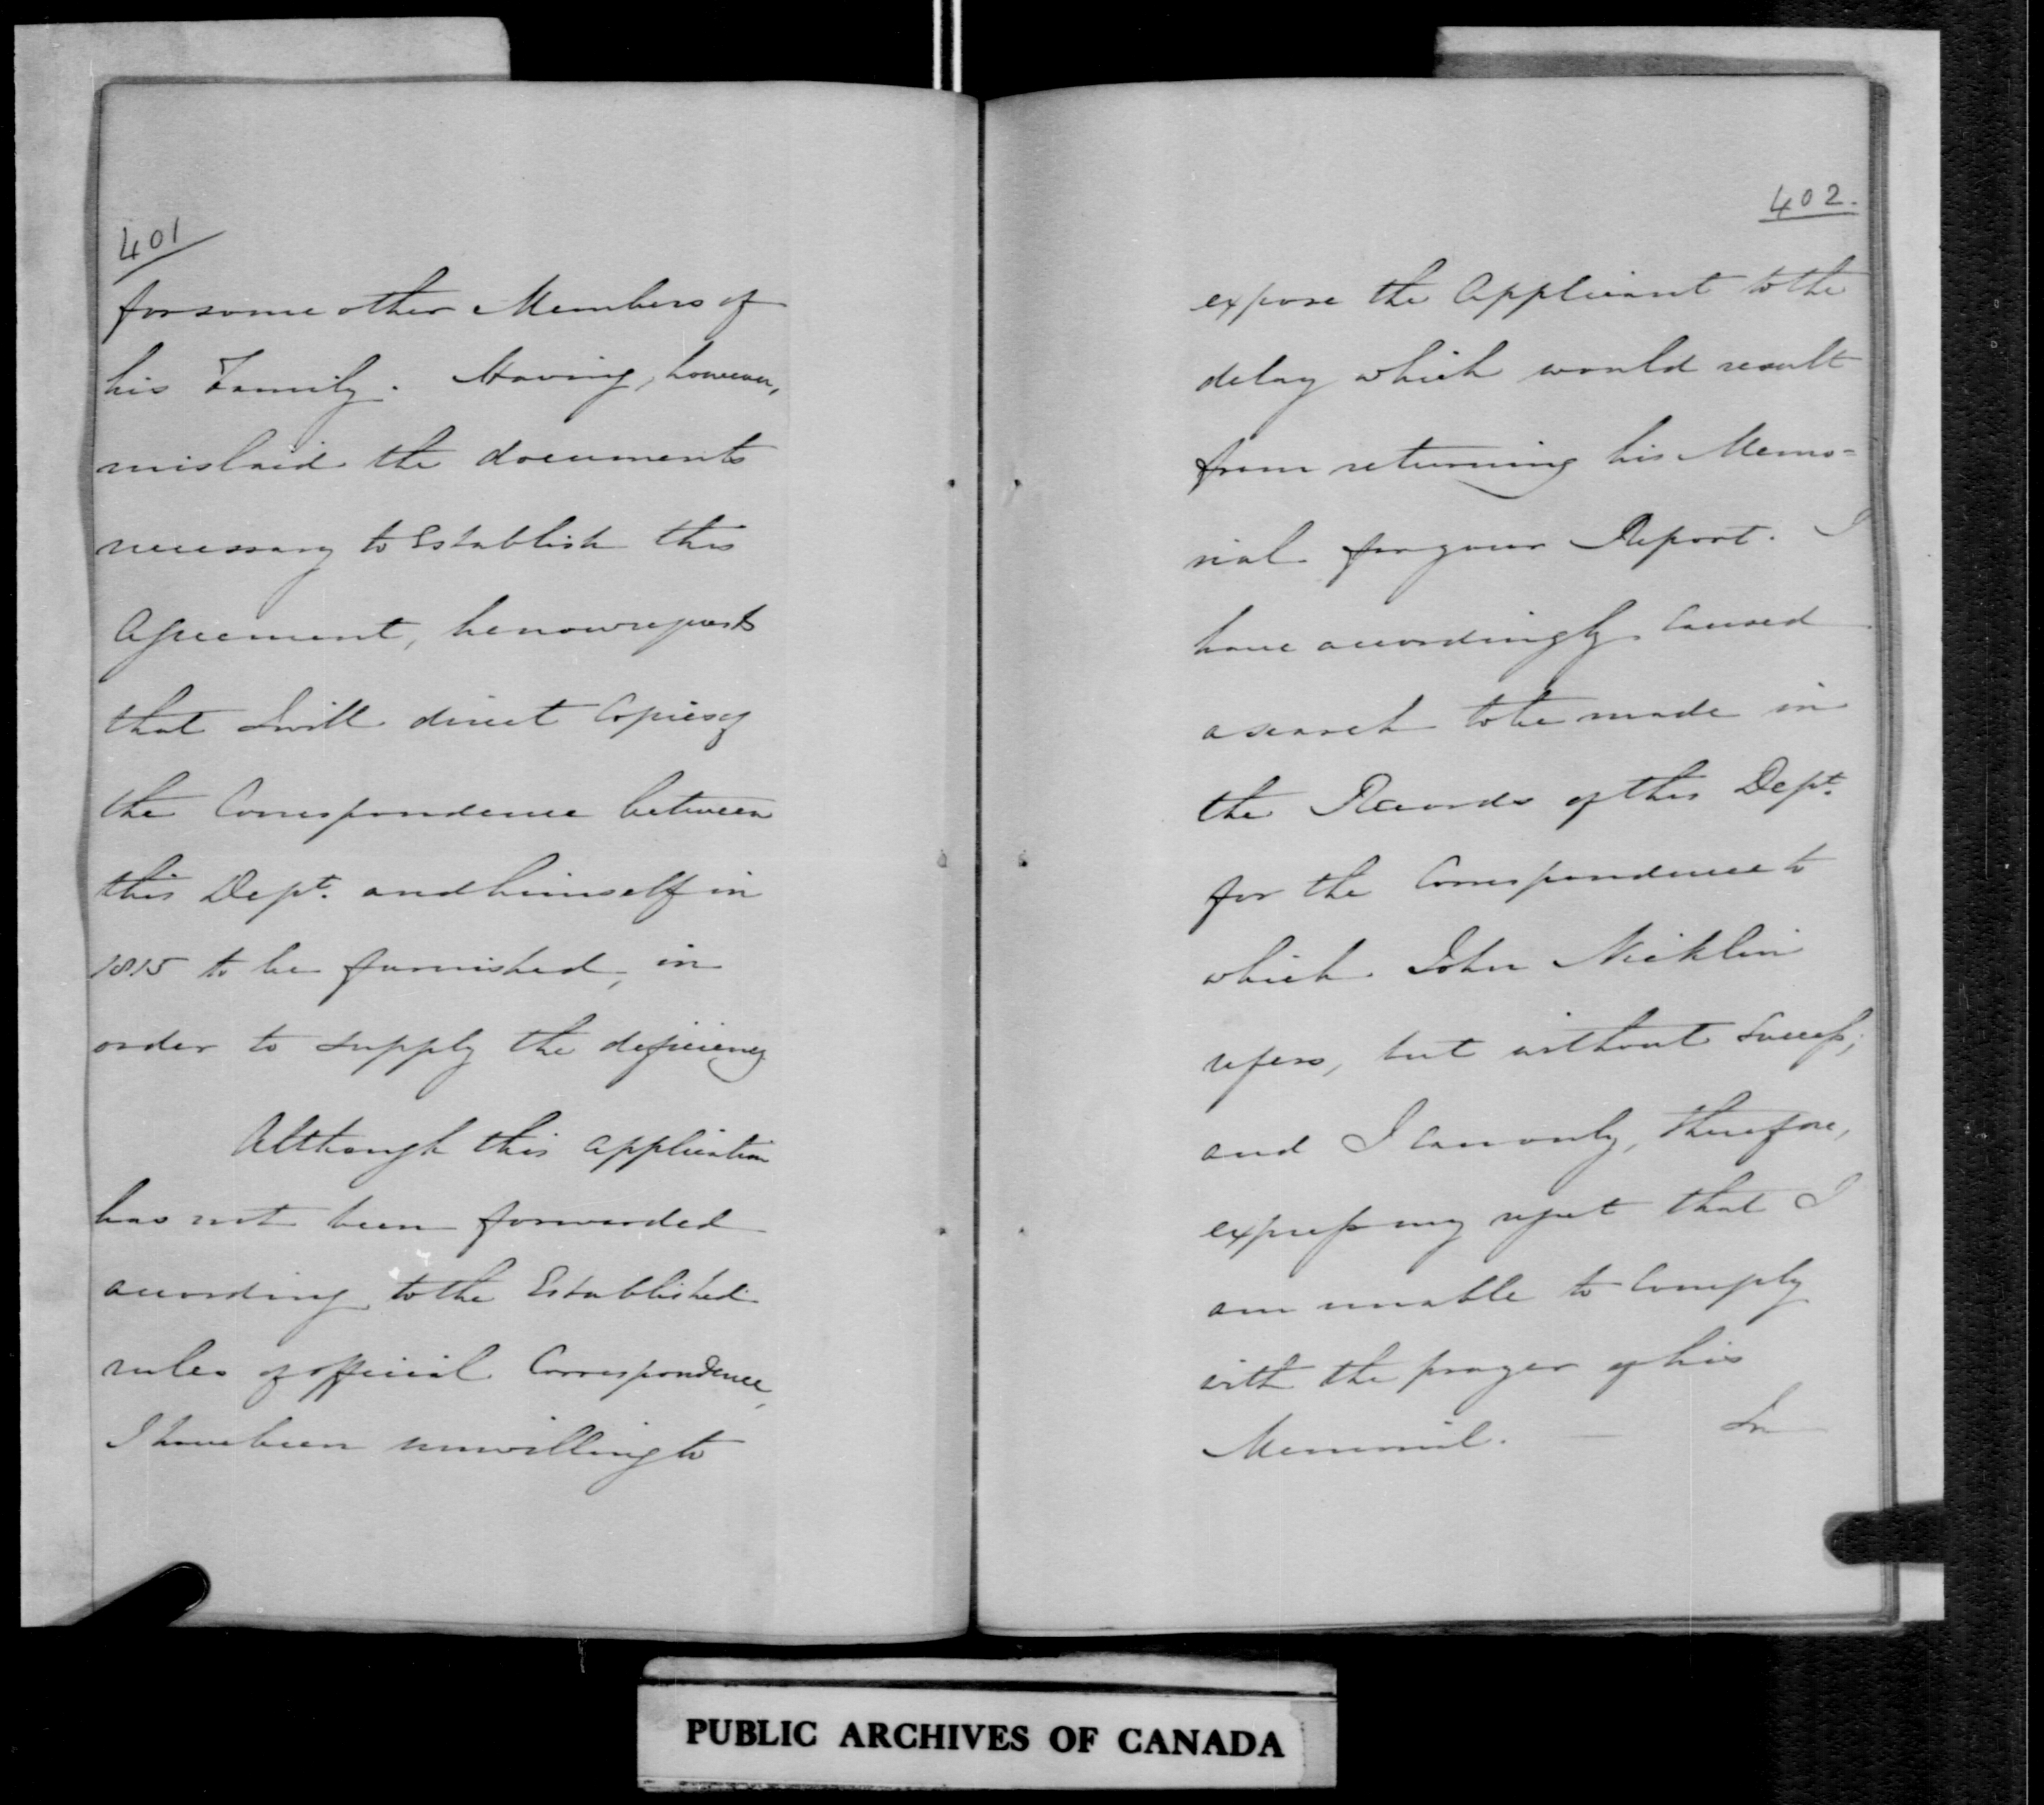 401
for some other Members of
his Family. Having, however,
mislaid the documents
necessary to Establish this
Agreement, he now requests
that I will direct Copies of
the Correspondence between
this Dept. and himself in
1815 to be furnished, in
order to supply the deficiency
Although this application
has not been forwarded
according to the Established
rules of official Correspondence,
I have been unwilling to
402.
expose the Applicant to the
delay which would result
from returning his Memo=
rial for your Report. I
have accordingly caused
a search to be made in
the Records of this Dept.
for the Correspondence to
which John Nicklin
refers, but without success;
and I can only, therefore,
express my regret that I
am unable to Comply
with the prayer of his
Memorial. —
PUBLIC ARCHIVES OF CANADA